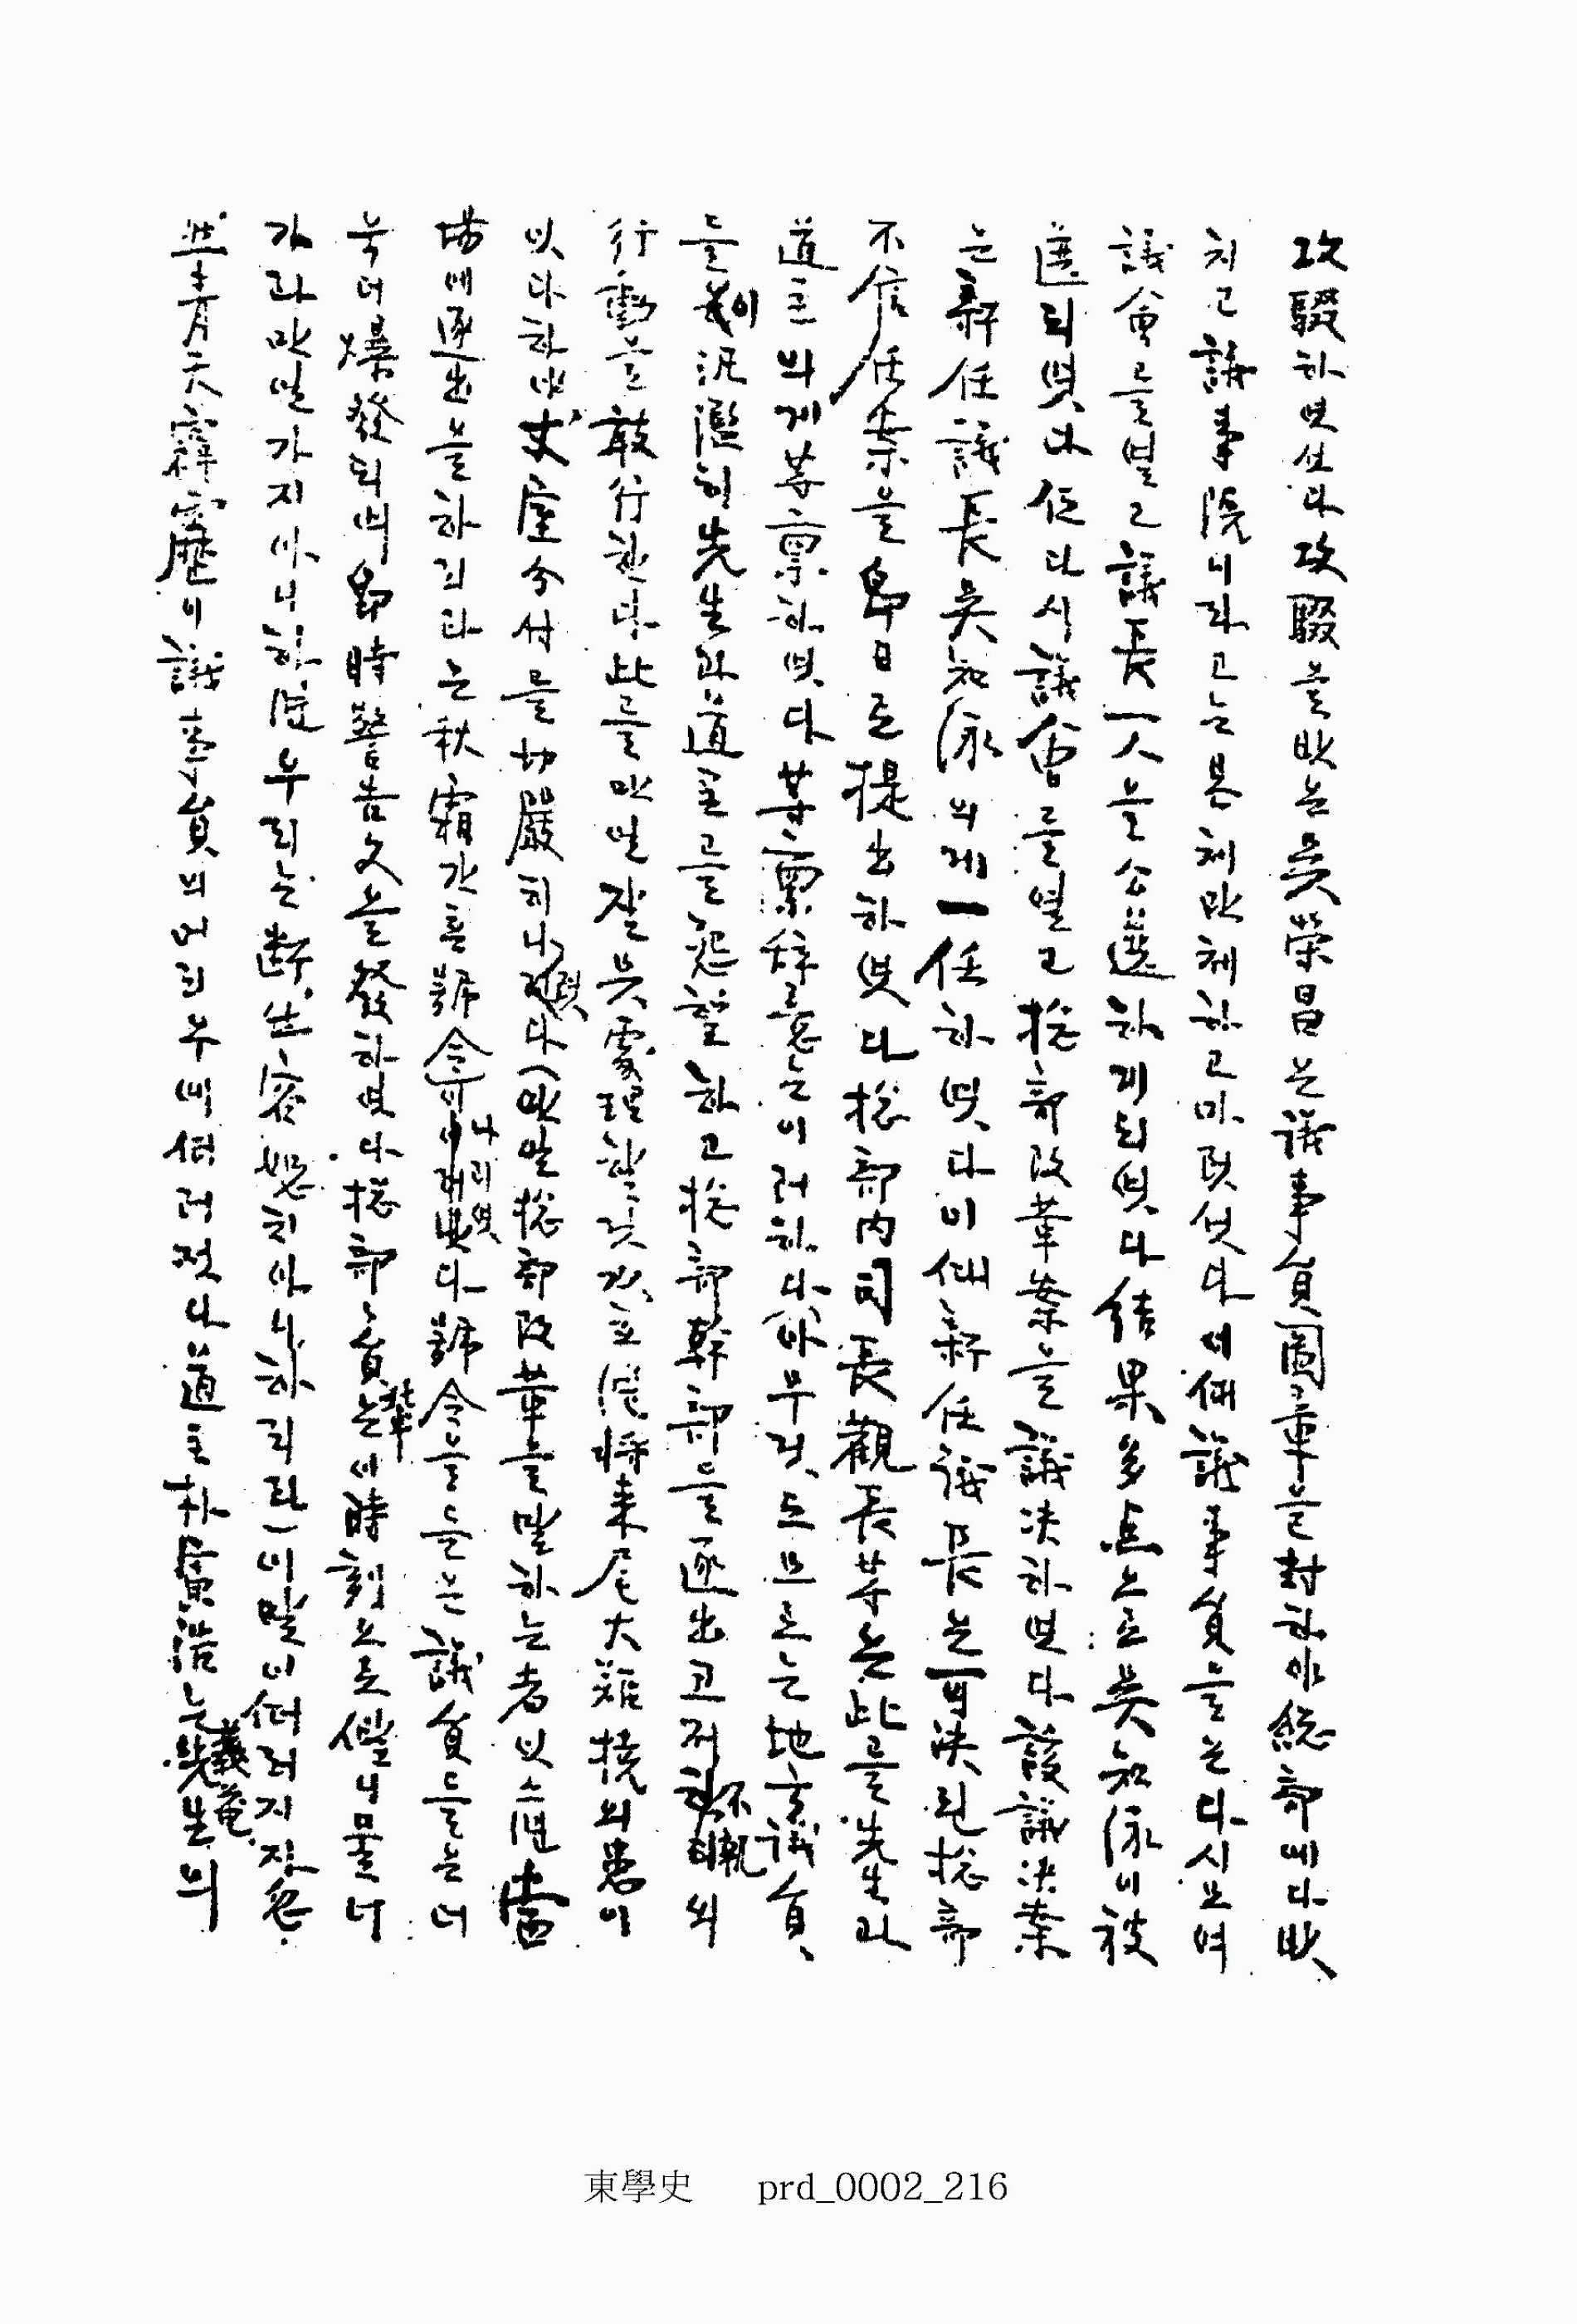 攻駁하엿섯다 攻駁을 바든 吳榮昌은 議事員圖章을 封하야 総部에 다 밧
치고 議事院니라고는 본체만체하고 마럿섯다 여러 議事員들은 다시 모여
議會를 열고 議長一人을 公選하게 되엿다 結果 多点으로 吳知泳이 被
選되엿다 但 다시 議會를 열고 総部改革案을 議決하엿다 該議決案
는 新任議長 吳知泳의게 一任하엿다 이에 新任議長은 可決된 総部
不信任案을 即日로 提出하엿다 総部內 司長 觀長 等은 此를 先生과
道主의게 等稟하엿다 其稟辞意는 이러하다 (아무것도 모로는 地方議員
들이 汎濫히 先生과 道主를 怨望하고 総部幹部를 逐出코저 하는 不軌의
行動을 敢行한다 此를 만일 잘못 處理할 것 갓흐면 將来 尾大難掉의 患이
잇다 하야 丈室分付를 切嚴히 나렷다 (만일 総部改革을 말하는 者 잇스면 當
場에 逐出을 하리라는 秋霜갓흔 號令이 나리엿다 號令을 들은 議員들는 더
욱더 爆發되며 即時 警告文을 發하엿다 総部員輩는 이 時刻으로 썩 물너
가라 만일 가지 아니하면 우리는 断然 容恕치 아니하리라) 이 말이 떠러지자 忽
然 青天霹靂이 議事員의 머리 우에 떠러젓다 道主 朴寅浩는 義菴先生의